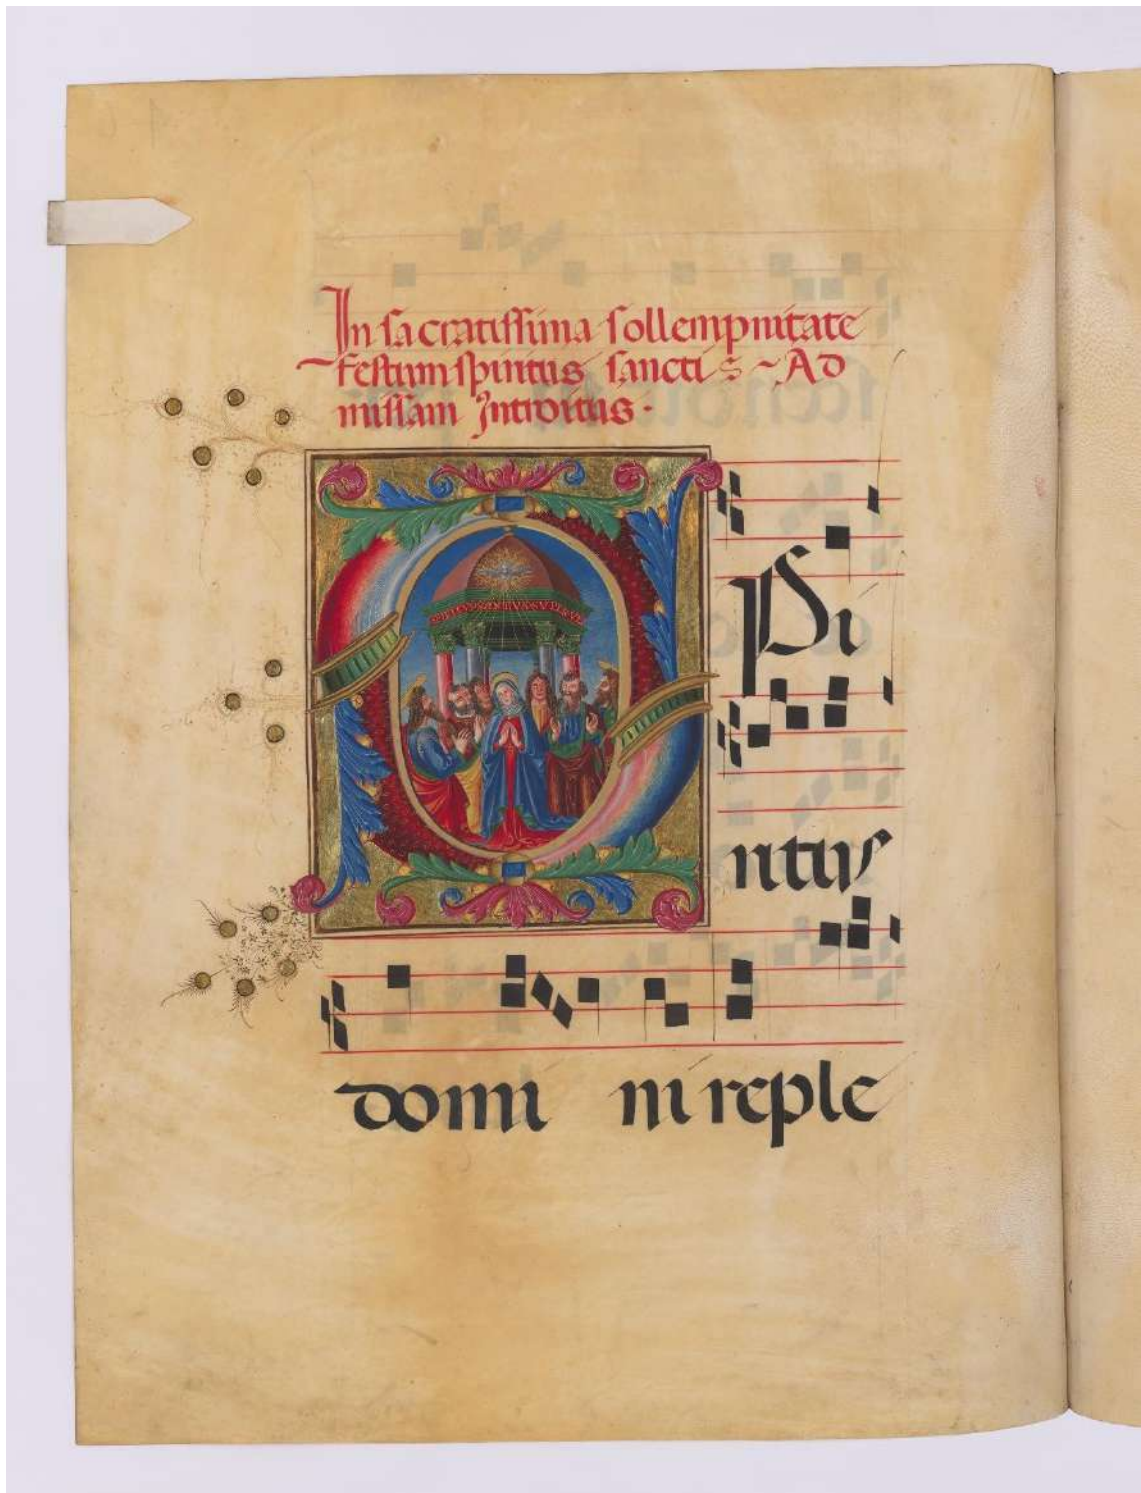 In sacratissima sollempnitate
festum spiritus sancti s ~ Ad
missam Introitus.
S
Pi
ritus
domi ni reple